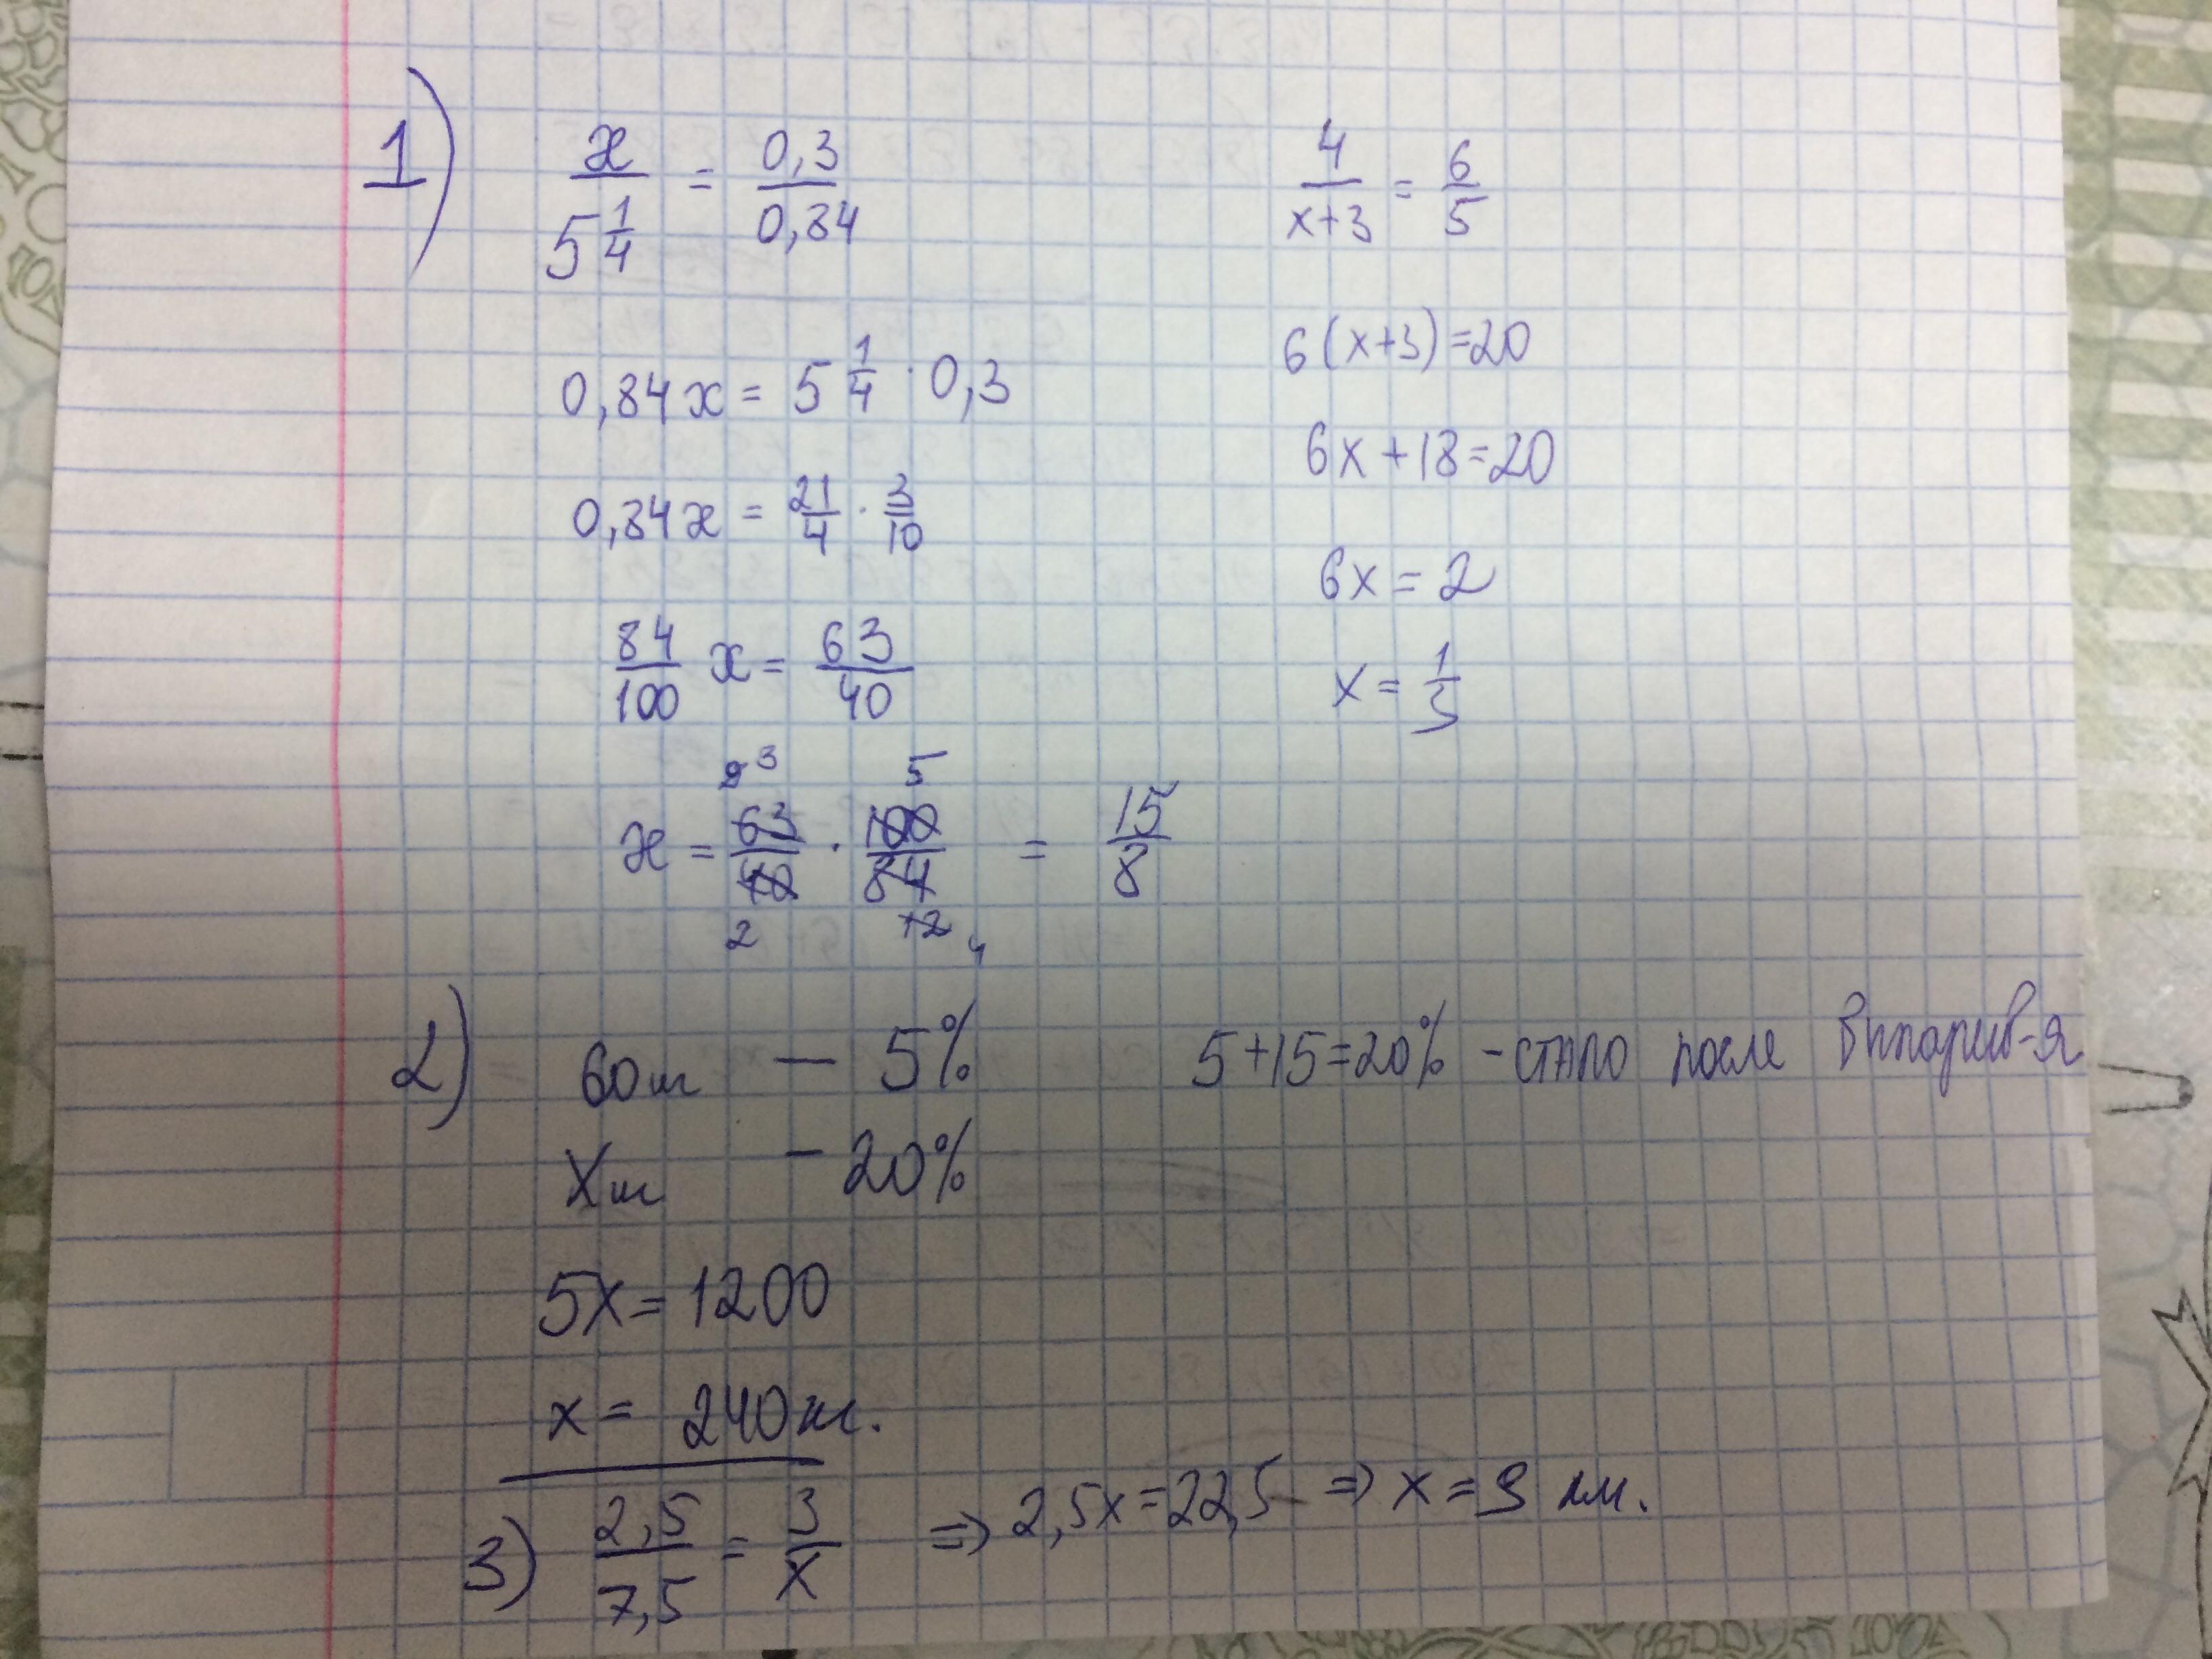 1) x/(5 1/4) = 0,3/0,84
0,84x = 5 1/4 · 0,3
0,84x = 21/4 · 3/10
84/100 x = 63/40
x = 63/40 · 100/84 = 15/8
9 3 5
2 12 4
4/(x+3) = 6/5
6(x+3)=20
6x+18=20
6x=2
x=1/3
2) 60т — 5% 5+15=20% -стало после выпарив-я
Xт – 20%
5x=1200
x= 240т.
3) 2,5/7,5 = 3/x => 2,5x=22,5 => x=9 км.